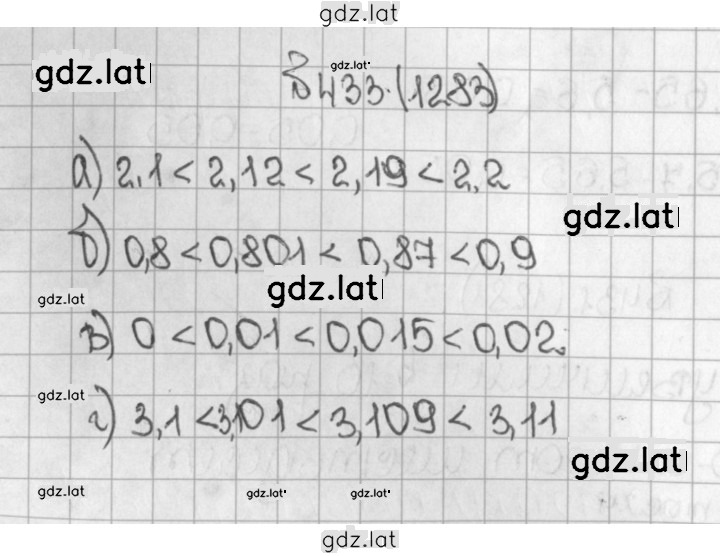 gdz.lat
gdz.lat
gdz.lat
433.(1283)
а) 2,1 < 2,12 < 2,19 < 2,2
gdz.lat
б) 0,8 < 0,801 < 0,87 < 0,9
gdz.lat
gdz.lat
в) 0 < 0,01 < 0,015 < 0,02.
gdz.lat
г) 3,1 < 3,101 < 3,109 < 3,11
gdz.lat
gdz.lat
gdz.lat
gdz.lat
gdz.lat